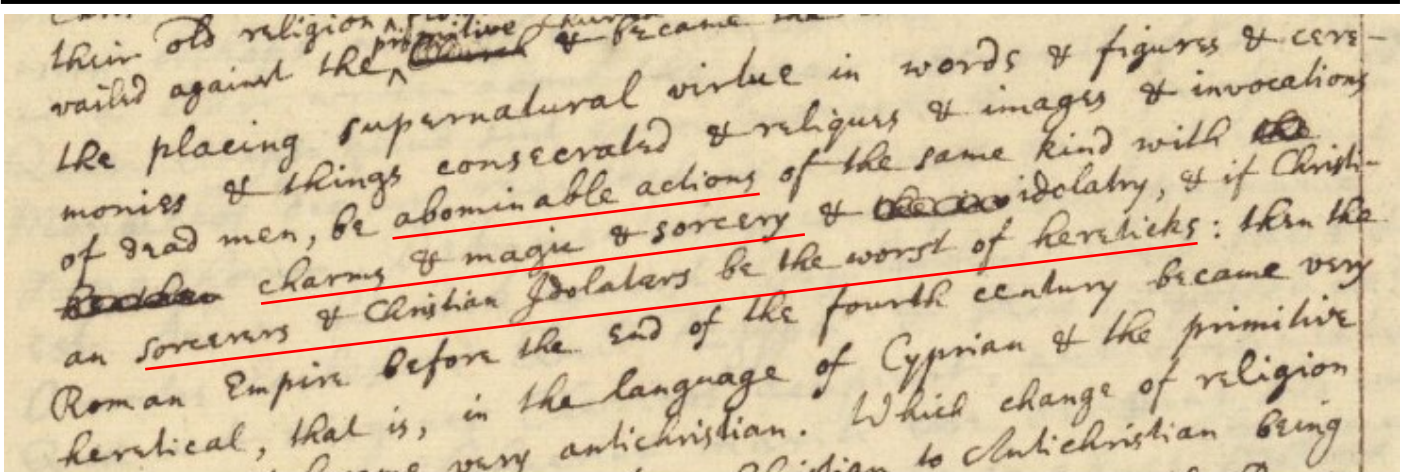 their old religion
primitive
vailed against the Church & became the
the placing supernatural virtue in words & figures & cere-
monies & things consecrated & reliques & images & invocations
of dead men, be abominable actions of the same kind with the
heathen charms & magic & sorcery & idolatry, & if Christi-
an sorcerers & Christian Idolatars be the worst of hereticks: then the
Roman Empire before the end of the fourth century became very
heretical, that is, in the language of Cyprian & the primitive
very antichristian. Which change of religion
to Antichristian being